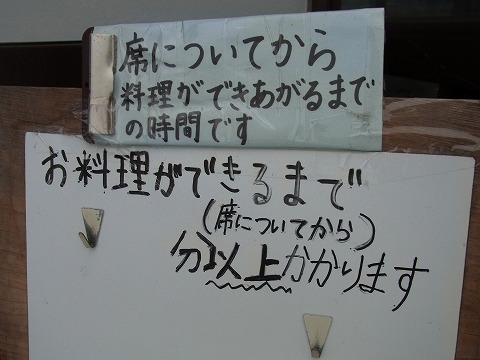 席についてから
料理ができあがるまで
の時間です
お料理ができるまで
(席についてから)
分以上かかります